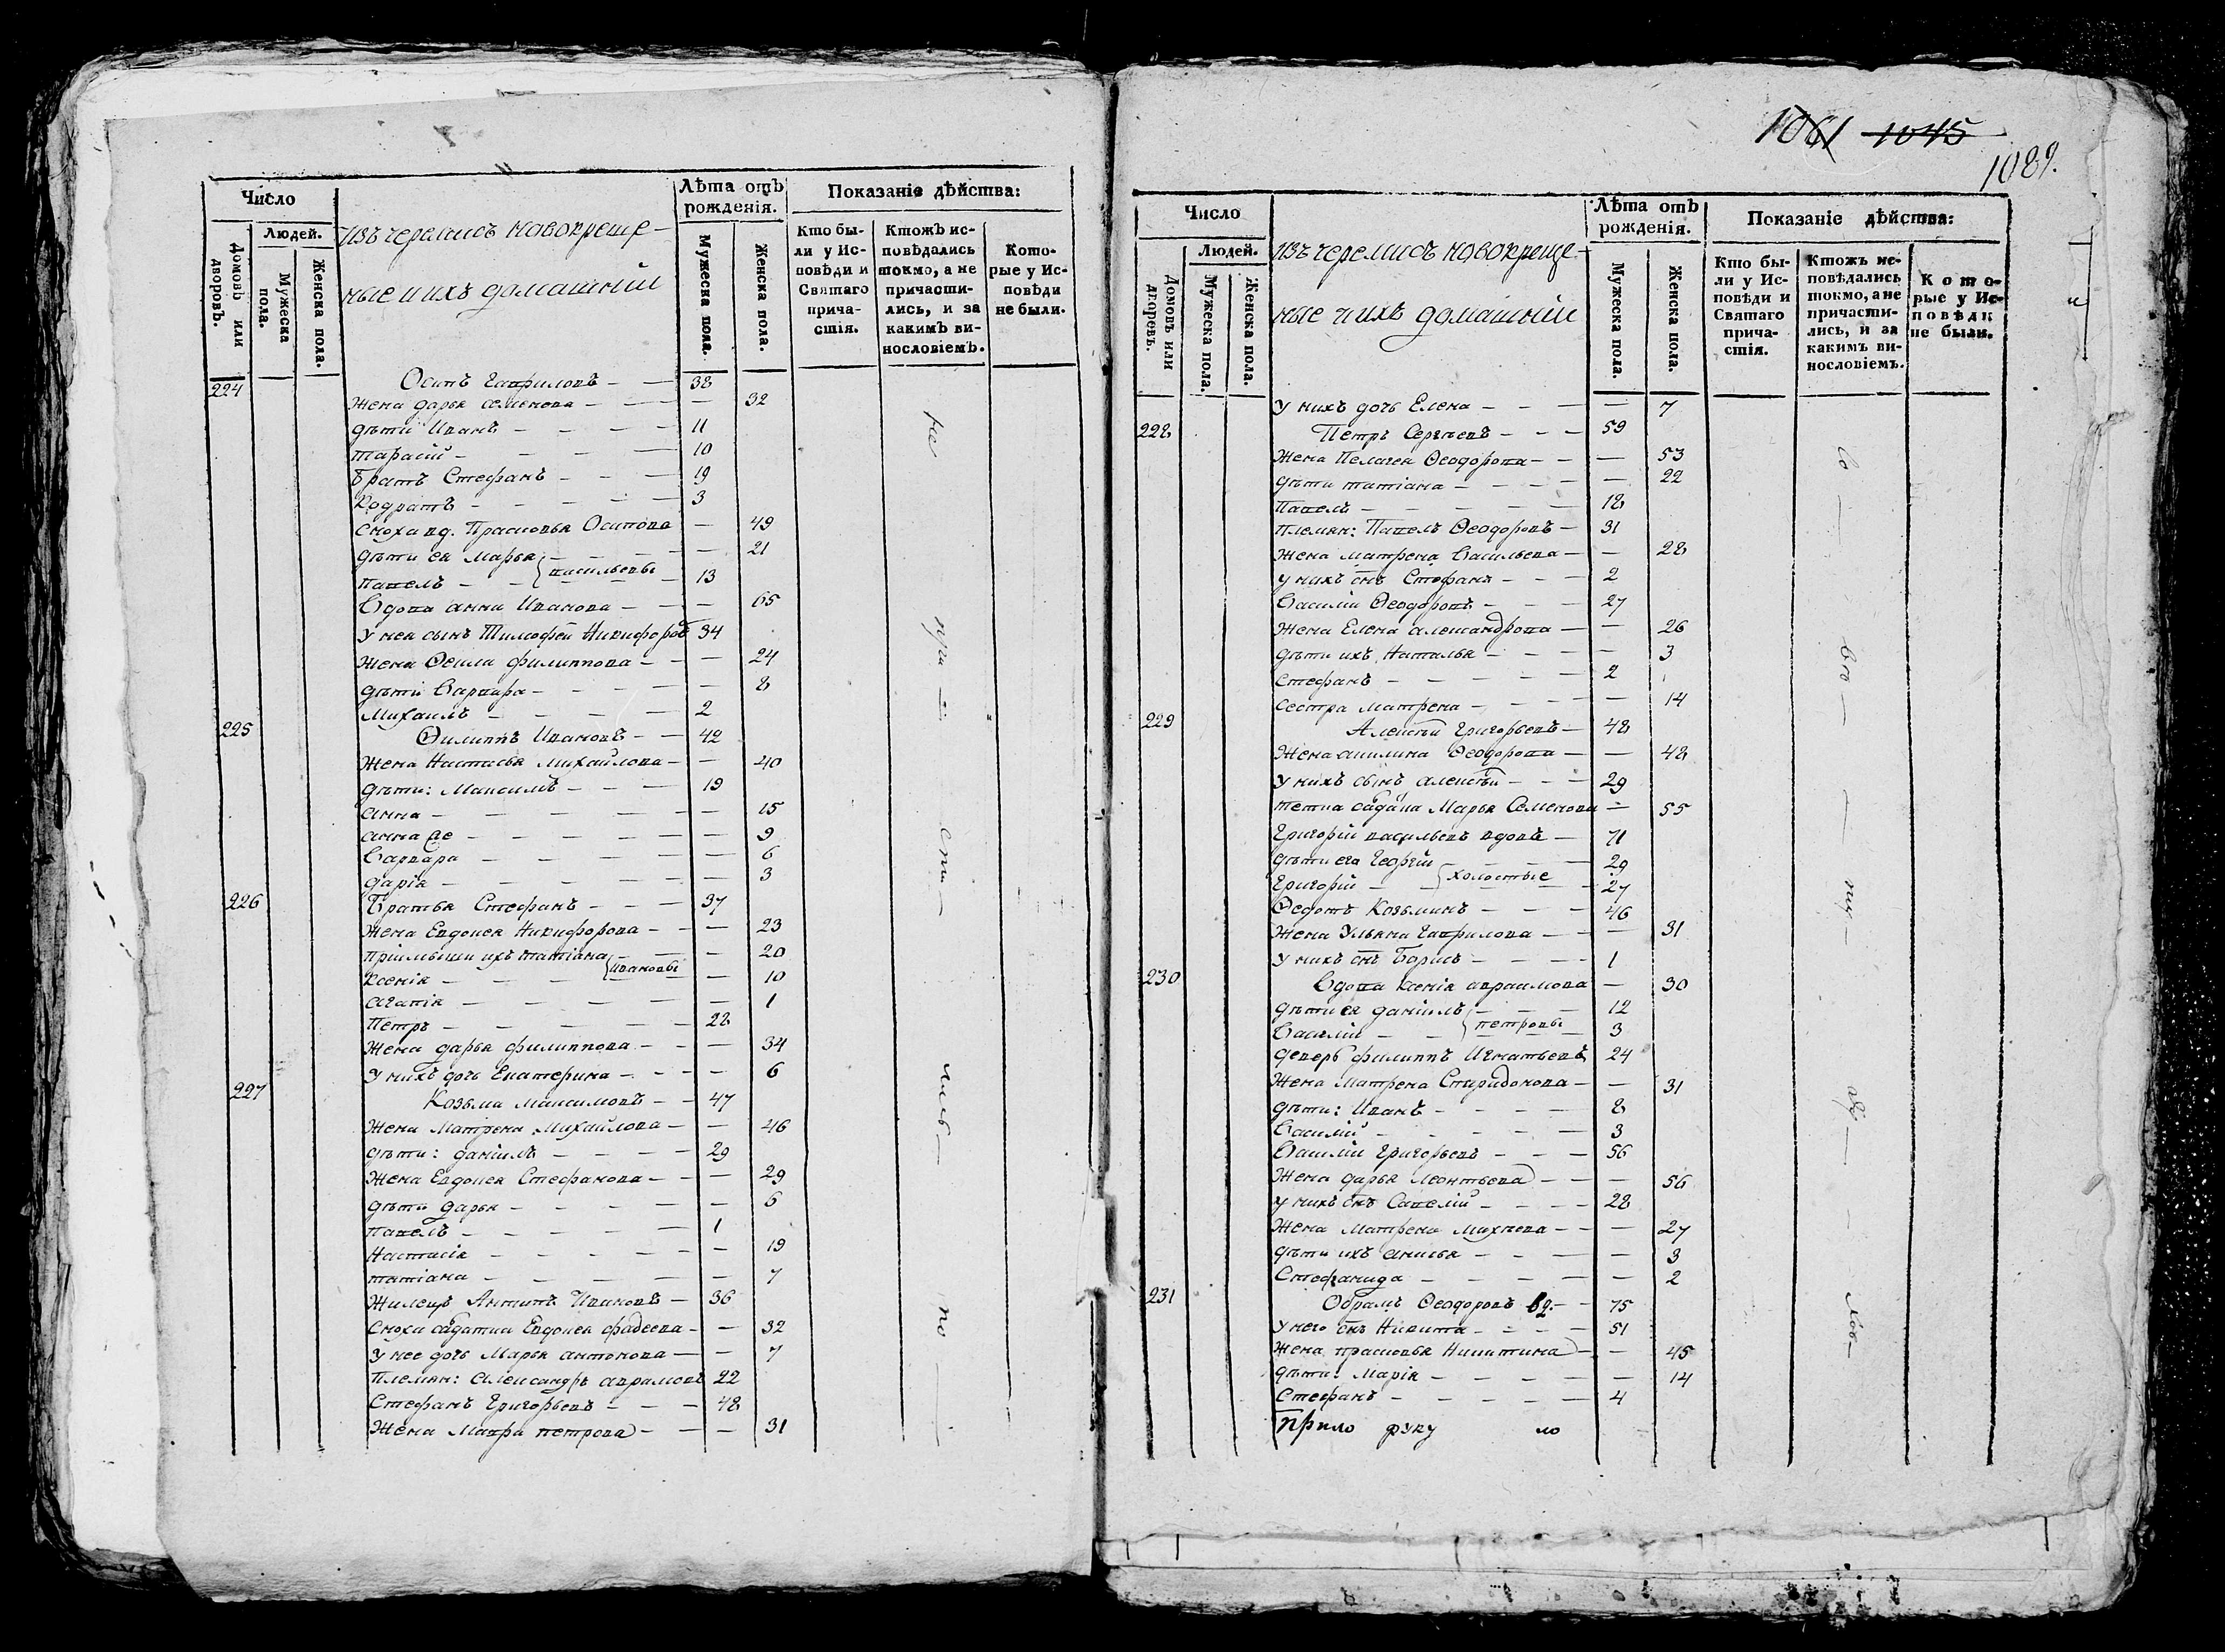 Число
Людей.
Домовъ или дворовъ.
Мужеска пола.
Женска пола.
Изъ черемисъ новокреще-
ные и ихъ домашнии
Лѣта отъ рожденія.
Мужеска пола.
Женска пола.
Показаніе дѣйства:
Кто бы-
ли у Ис-
повѣди и
Святаго
прича-
стія.
Ктожъ ис-
повѣдались
токмо, а не
причасти-
лись, и за
какимъ ви-
нословіемъ.
Кото-
рые у Ис-
повѣди
не были.
224 Осипъ Гавриловъ — — 38
Жена Дарья Семенова — — — 32
дѣти Иванъ — — — — 11
Тарасій — — — — 10
братъ Стефанъ — — — 19
Кодратъ — — — — 3
Сноха вд. Прасковья Осипова — 49
дѣти ея Марья — — — — 21
Павелъ — — Васильевы — 13
Вдова Анна Иванова — — — 65
У нея сынъ Тимофей Никифоровъ 34
Жена Ѳекла Филиппова — — — 24
дѣти Варвара — — — — 8
Михаилъ — — — — 2
225 Филиппъ Ивановъ — — 42
Жена Настасья Михайлова — — 40
дѣти: Максимъ — — — 19
Анна — — — — — 15
Анна же — — — — — 9
Варвара — — — — — 6
Дарія — — — — — 3
226 Братья Стефанъ — — — 37
Жена Евдокея Никифорова — — — 23
Пріимыши ихъ Татіана — — — 20
Ксенія — — — Ивановы — 10
Агапія — — — — — 1
Петръ — — — — — 28
Жена Дарья Филиппова — — — 34
У нихъ дочь Екатерина — — — 6
227 Козьма Максимовъ — — 47
Жена Матрена Михайлова — — 46
дѣти: Даніилъ — — — — 29
Жена Евдокея Стефанова — — — 29
дѣти Дарья — — — — — 6
Павелъ — — — — 1
Настасія — — — — — 19
Татіана — — — — — 7
Жилецъ Антипъ Ивановъ — 36
Сноха салдатка Евдокея Фадеева — — 32
У нее дочь Марья Антонова — — 7
Племян: Александръ Аврамовъ 22
Стефанъ Григорьевъ — — — 48
Жена Мавра Петрова — — — 31
не
при
ча
сти
лись
по
1061 1045
1089.
Число
Людей.
Домовъ или дворевъ.
Мужеска пола.
Женска пола.
Изъ черемисъ новокреще-
ные и ихъ домашнии
Лѣта отъ рожденія.
Мужеска пола.
Женска пола.
Показаніе дѣйства:
Кто бы-
ли у Ис-
повѣди и
Святаго
прича-
стія.
Ктожъ ис-
повѣдались
токмо, а не
причасти-
лись, и за
какимъ ви-
нословіемъ.
Кото-
рые у Ис-
повѣди
не были.
У нихъ дочь Елена — — — — 7
228 Петръ Сергѣевъ — — — 59
Жена Пелагея Ѳеодорова — — — 53
дѣти Татіана — — — — — 22
Павелъ — — — — — 18
Племян: Павелъ Ѳеодоровъ — 31
Жена Матрена Васильева — — 28
У нихъ снъ Стефанъ — — — 2
Василій Ѳеодоровъ — — — 27
Жена Елена Александрова — — 26
дѣти ихъ Наталья — — — — 3
Стефанъ — — — — — 2
Сестра Матрена — — — — — 14
229 Алексѣй Григорьевъ — 48
Жена Акилина Ѳеодорова — — 48
У нихъ сынъ Алексѣй — — — 29
Тетка салдатка Марья Семенова — 55
Григорій Васильевъ вдовъ — 71
дѣти его Георгій — — — 29
Григорій — — холостые — 27
Ѳедотъ Козьминъ — — — 46
Жена Ульяна Гаврилова — — — 31
У нихъ снъ Борисъ — — — — 1
230 Вдова Ксенія Авраамова — 30
дѣти ея Даніилъ — — — 12
Василій — — Петровы — 3
Деверь Филиппъ Игнатьевъ 24
Жена Матрена Спиридонова — — 31
дѣти: Иванъ — — — — 8
Василій — — — — — 3
Василій Григорьевъ — — — 56
Жена Дарья Леонтьева — — — 56
У нихъ снъ Савелій — — — — 28
Жена Матрена Михѣева — — — 27
дѣти ихъ Акилья — — — — 3
Стефанида — — — — — 2
231 Обрамъ Ѳеодоровъ вд. — 75
У него снъ Никита — — — — 51
Жена Прасковья Никитина — — 45
дѣти: Марія — — — — — 14
Стефанъ — — — — — 4
Прило руку ло